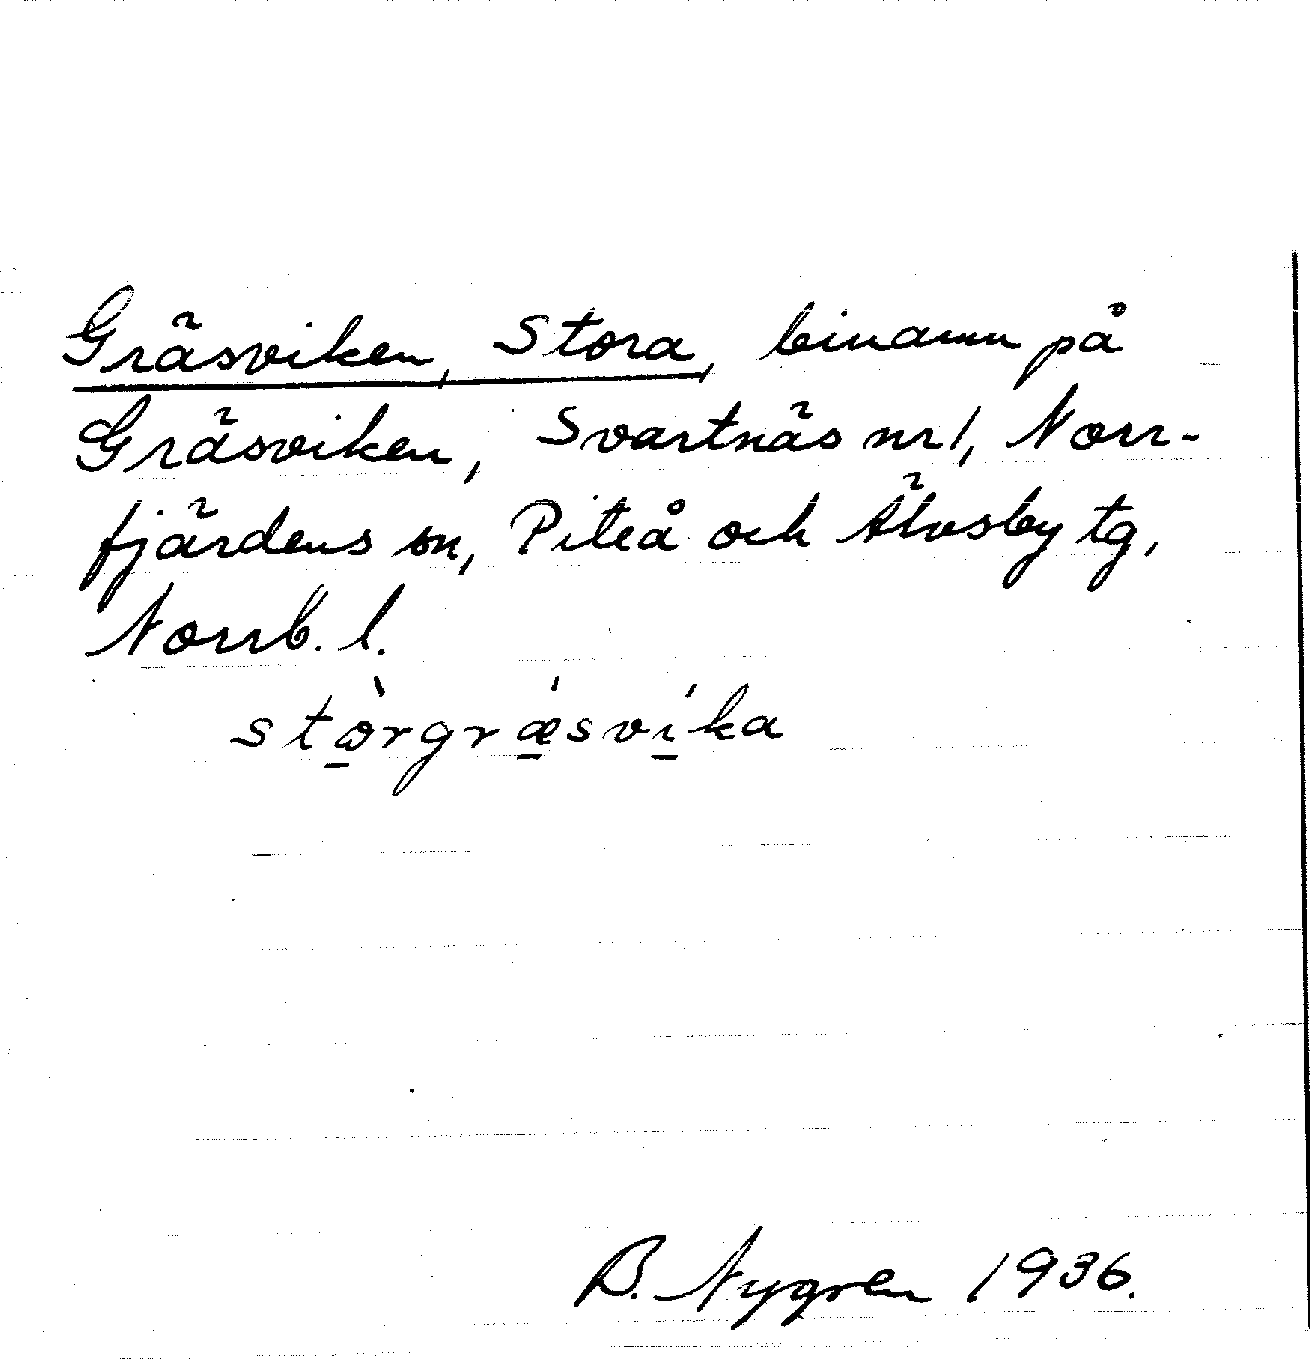 Gräsviken, Stora, binamn på
Gräsviken, Svartnäs nr 1, Norr-
fjärdens sn, Piteå och Älvsby tg,
Norrb. l.
stòrgrǽsvíka
B. Nygren 1936.